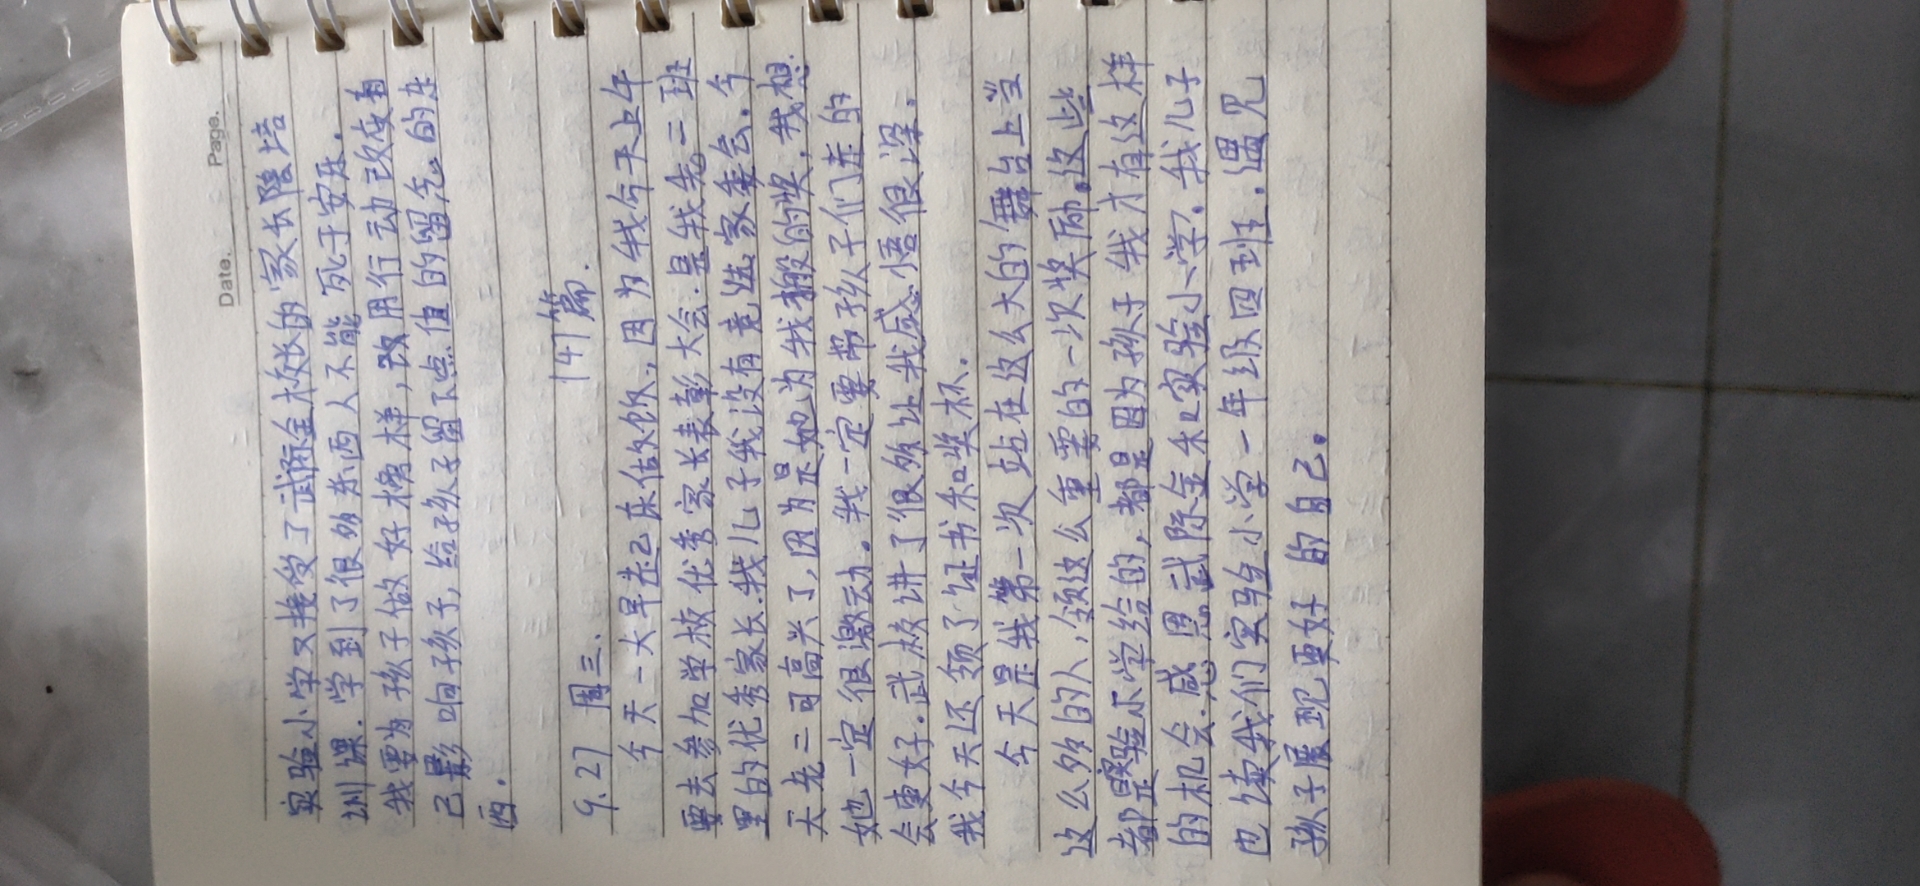 Date. Page.
实验小学又接受了武际金校长的家长陪培
训课.学到了很多东西人不能死于安乐.
我要为孩子做好榜样,改用行动改变自
己影响孩子,给孩子留下点值的留念的东
西.
147篇.
9.27 周三.
今天一大早起床做饭,因为我今天上午
要去参加学校优秀家长表彰大会.是我先二班
里的优秀家长.我儿子我没有竞选家委会.今
天老二可高兴了,因为是她为我搬的奖,我想.
她一定很激动。我一定要带孩子们走的
会更好.武校讲了很多让我感悟很深.
我今天还领了证书和奖杯.
今天是我第一次站在这么大的舞台上当
这么多的人,领这么重要的一次奖励.这些
都是实验小学给的,都是因为孩子我才有这样
的机会.感恩武际金和实验小学.我儿子
也读我们实验小学一年级四班.遇见
孩子展现更好的自己.